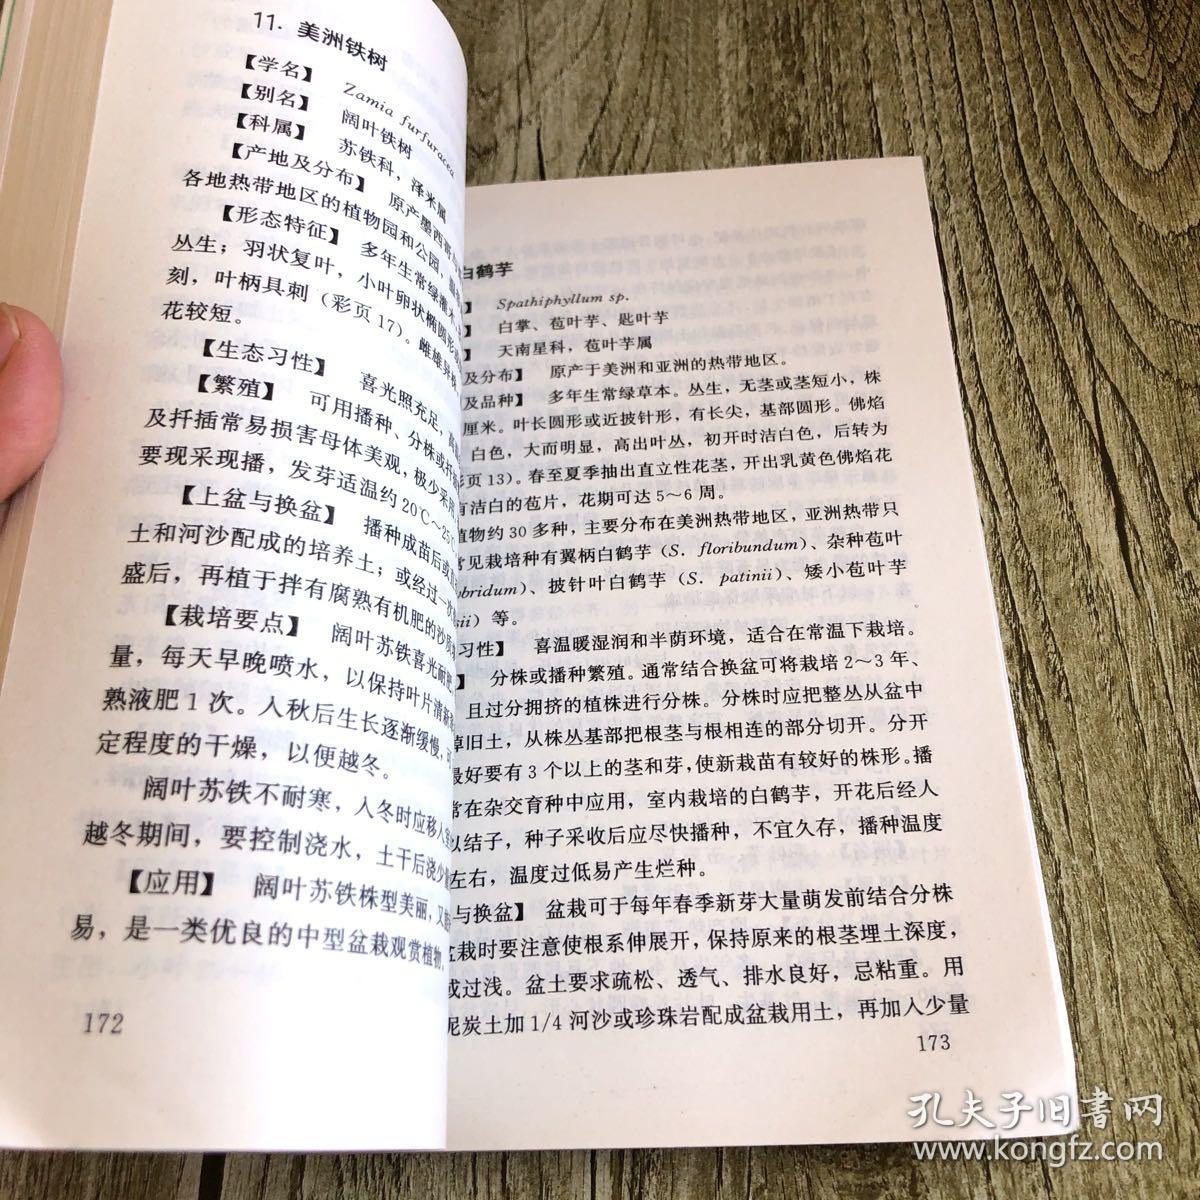 11. 美洲铁树
【学名】 Zamia furfuracea
【别名】 阔叶铁树
【科属】 苏铁科，泽米属
【产地及分布】 原产墨西哥
各地热带地区的植物园和公园，
【形态特征】 多年生常绿灌木
丛生；羽状复叶，小叶卵状椭圆形
刻，叶柄具刺（彩页17）。雌雄异株
花较短。
【生态习性】 喜光照充足，
【繁殖】 可用播种、分株或扦
及扦插常易损害母体美观，极少采用
要现采现播，发芽适温约20℃～25℃
【上盆与换盆】 播种成苗后或
土和河沙配成的培养土；或经过一
盛后，再植于拌有腐熟有机肥的沙
【栽培要点】 阔叶苏铁喜光耐
量，每天早晚喷水，以保持叶片清新
熟液肥1次。入秋后生长逐渐缓慢，
定程度的干燥，以便越冬。
阔叶苏铁不耐寒，入冬时应移
越冬期间，要控制浇水，土干后浇少
【应用】 阔叶苏铁株型美丽，又
易，是一类优良的中型盆栽观赏植物。
172
白鹤芋
】 Spathiphyllum sp.
】 白掌、苞叶芋、匙叶芋
】 天南星科，苞叶芋属
及分布】 原产于美洲和亚洲的热带地区。
及品种】 多年生常绿草本。丛生，无茎或茎短小，株
厘米。叶长圆形或近披针形，有长尖，基部圆形。佛焰
白色，大而明显，高出叶丛，初开时洁白色，后转为
彩页13）。春至夏季抽出直立性花茎，开出乳黄色佛焰花
有洁白的苞片，花期可达5～6周。
植物约30多种，主要分布在美洲热带地区，亚洲热带只
常见栽培种有翼柄白鹤芋（S. floribundum）、杂种苞叶
bridum）、披针叶白鹤芋（S. patinii）、矮小苞叶芋
sii）等。
习性】 喜温暖湿润和半荫环境，适合在常温下栽培。
】 分株或播种繁殖。通常结合换盆可将栽培2～3年、
且过分拥挤的植株进行分株。分株时应把整丛从盆中
掉旧土，从株丛基部把根茎与根相连的部分切开。分开
最好要有3个以上的茎和芽，使新栽苗有较好的株形。播
常在杂交育种中应用，室内栽培的白鹤芋，开花后经人
以结子，种子采收后应尽快播种，不宜久存，播种温度
左右，温度过低易产生烂种。
与换盆】 盆栽可于每年春季新芽大量萌发前结合分株
盆栽时要注意使根系伸展开，保持原来的根茎埋土深度，
或过浅。盆土要求疏松、透气、排水良好，忌粘重。用
泥炭土加1/4河沙或珍珠岩配成盆栽用土，再加入少量
173
孔夫子旧书网
www.kongfz.com